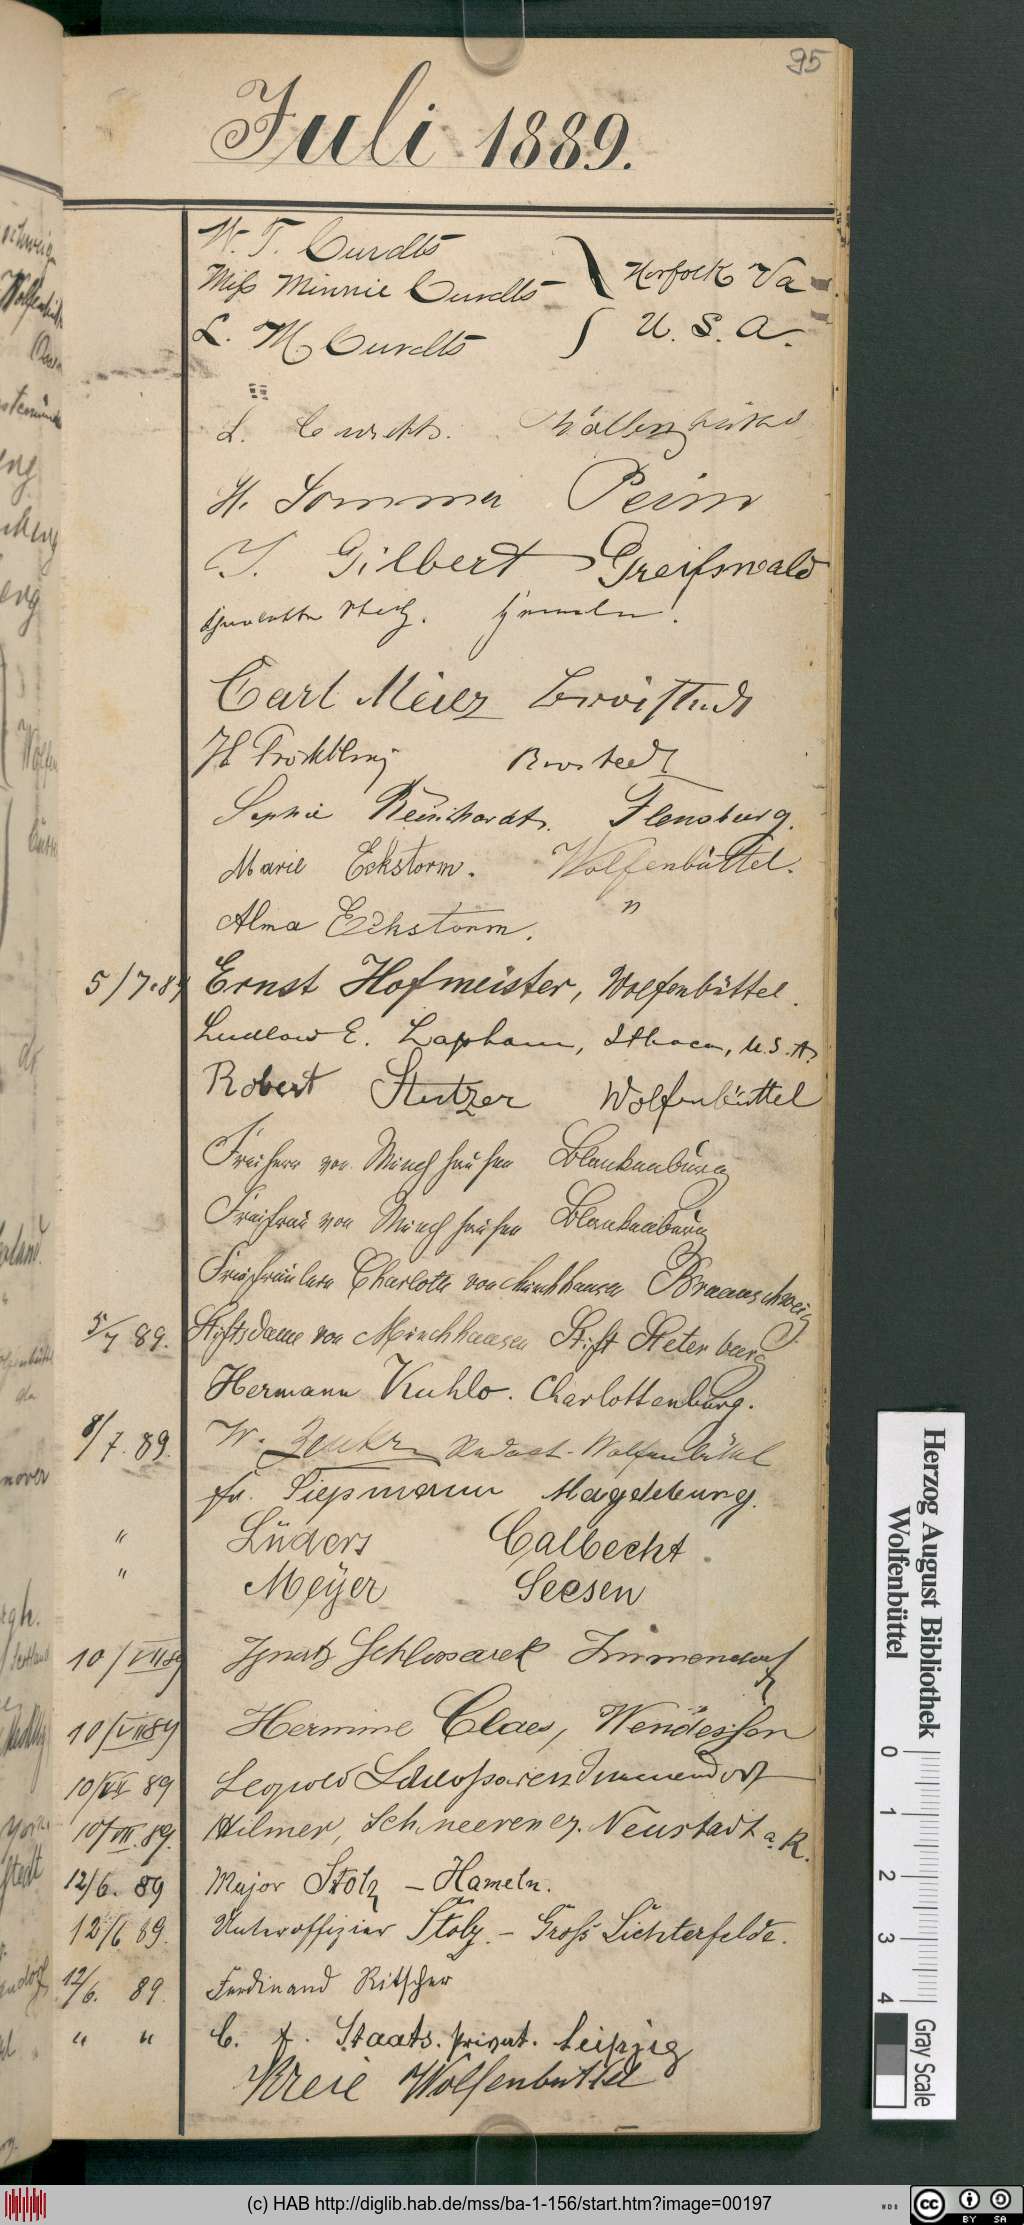 95
Juli 1889.
W. T. Curdts
Miss Minnie Curdts Norfolk Va
L. M Curdts U. S. A.
L. Curdts.
H. Sommer Peine
J. Gilbert Greifswald
Hameln.
Carl Meier
H
Sophie Reinhardt. Flensburg.
Marie Eckstorm. Wolfenbüttel.
Alma Eckstorm. "
5/7.89 Ernst Hofmeister, Wolfenbüttel.
Ludlow E. Lapham, Ithaca, U.S.A.
Robert Stutzer Wolfenbüttel
Freiherr von Münchhausen Blankenburg
Freifrau von Münchhausen Blankenburg
Freifräulein Charlotte von Münchhausen Braunschweig
5/7 89. Stiftsdame von Münchhausen Stift Steterburg
Hermann Kuhlo. Charlottenburg.
8/7. 89. W. Wolfenbüttel
Fr. Siepmann Magdeburg.
" Lüders Calbecht.
" Meyer Seesen
10/VII 89 Ignatz Schlossarek Immendorf
10/VII 89 Hermine Claes, Wendessen
10/VII 89 Leopold Schlossarek Immendorf
10/VII. 89. Hilmer, Schneeren b. Neustadt a. R.
12/6. 89 Major Stolz - Hameln.
12/6 89. Unteroffizier Stolz. - Gross Lichterfelde.
12/6. 89. Ferdinand Ritscher
" " C. F. Staats. Privat. Leipzig
Kreie Wolfenbüttel
Herzog August Bibliothek
Wolfenbüttel
0 1 2 3 4
Gray Scale
(c) HAB http://diglib.hab.de/mss/ba-1-156/start.htm?image=00197
WDB
CC BY SA